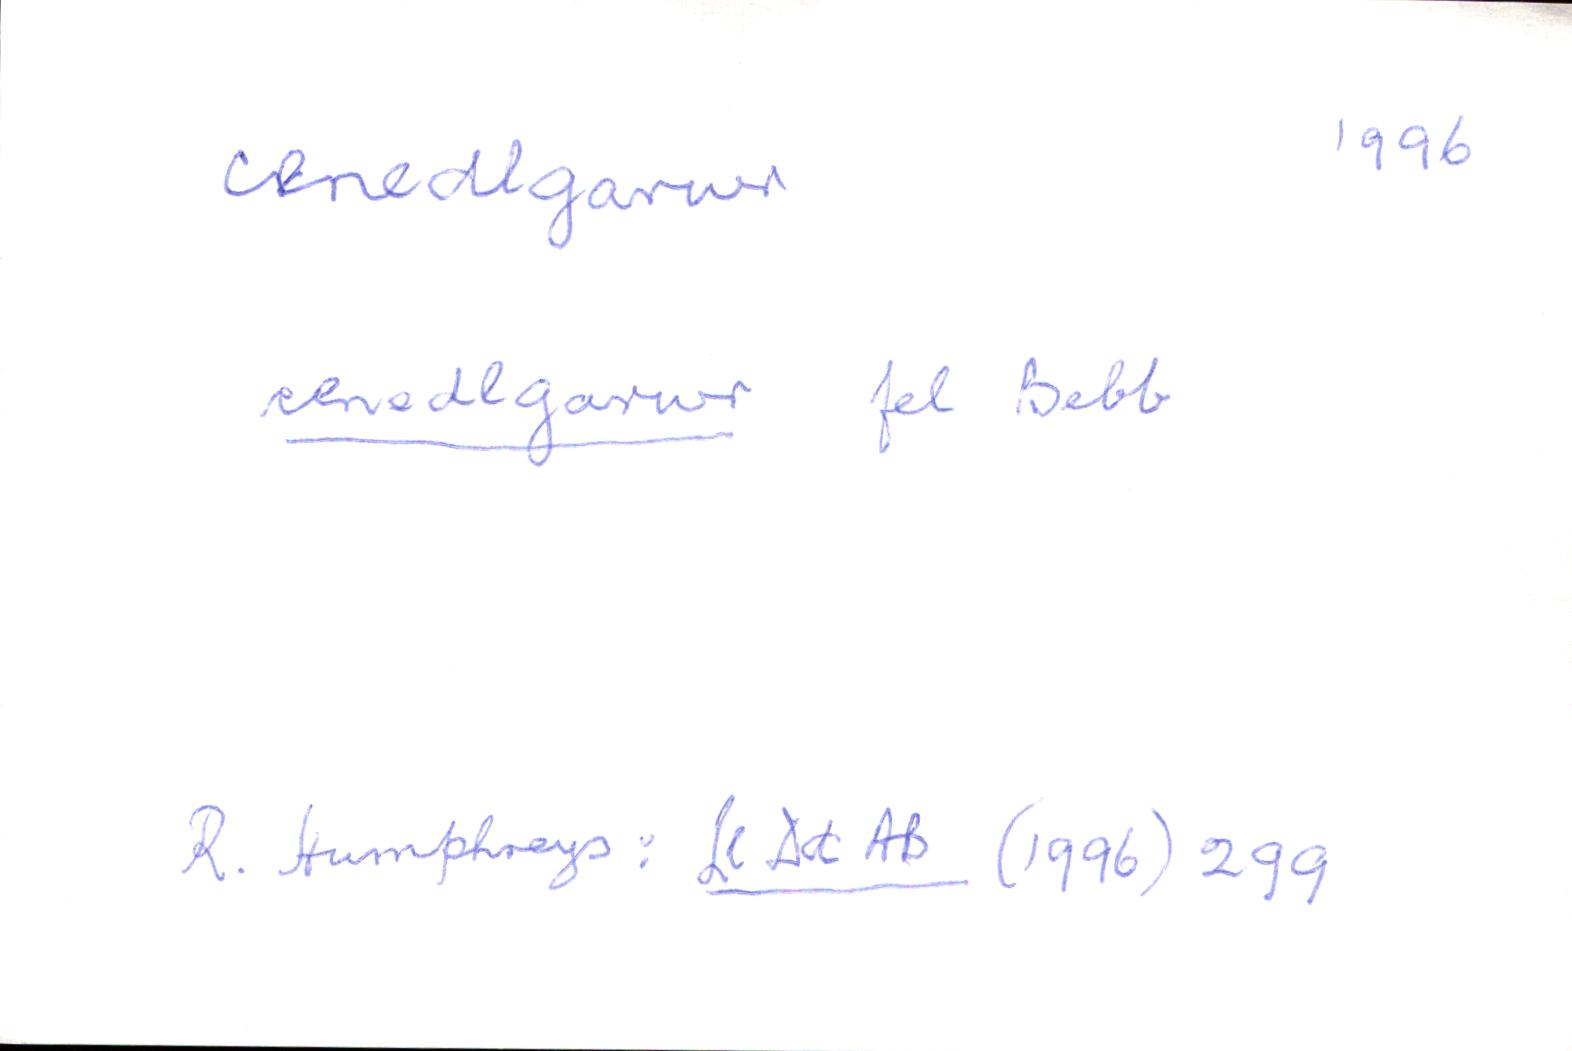 cenedlgarwr 1996
cenedlgarwr fel Bebb
R. Humphreys: AB (1996) 299